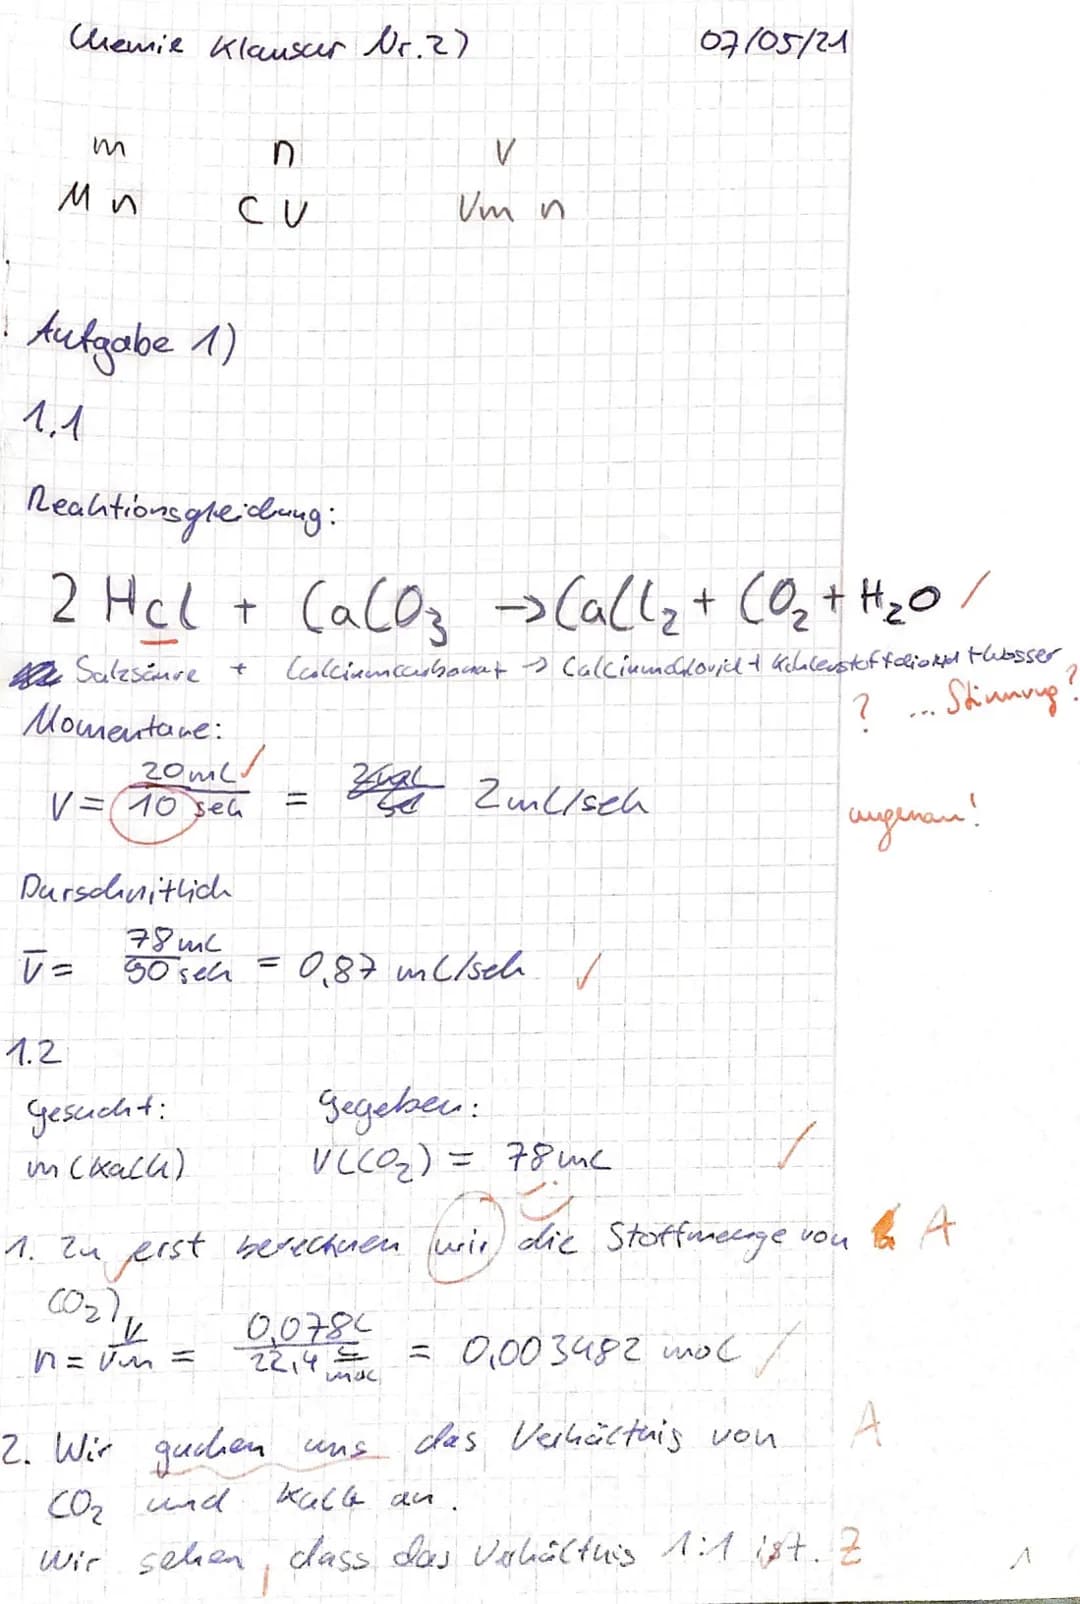 Chemie Klausur Nr. 2) 07/05/21
m n V
M n C V Vm n
Aufgabe 1)
1.1
Reaktionsgleichung:
2 Hcl + CaCO₃ → CaCl₂ + CO₂ + H₂O ✓
Salzsäure + Calciumcarbonat → Calciumchlorid + Kohlenstoffdioxid + Wasser
Momentane: ? ... Stimmung?
V = 20ml/10 sek = 2ml/sek ungenau!
Durschnitlich
V̄ = 78ml/90 sek = 0,87 ml/sek ✓
1.2
gesucht: gegeben:
m (Kalk) V(CO₂) = 78ml ✓
1. Zu erst berechnen wir die Stoffmenge von A
CO₂)
n = V/Vm = 0,078L/22,4 L/mol = 0,003482 mol ✓
2. Wir guchen uns das Verhältnis von A
CO₂ und Kalk an.
Wir sehen, dass das Verhältnis 1:1 ist. Z
1